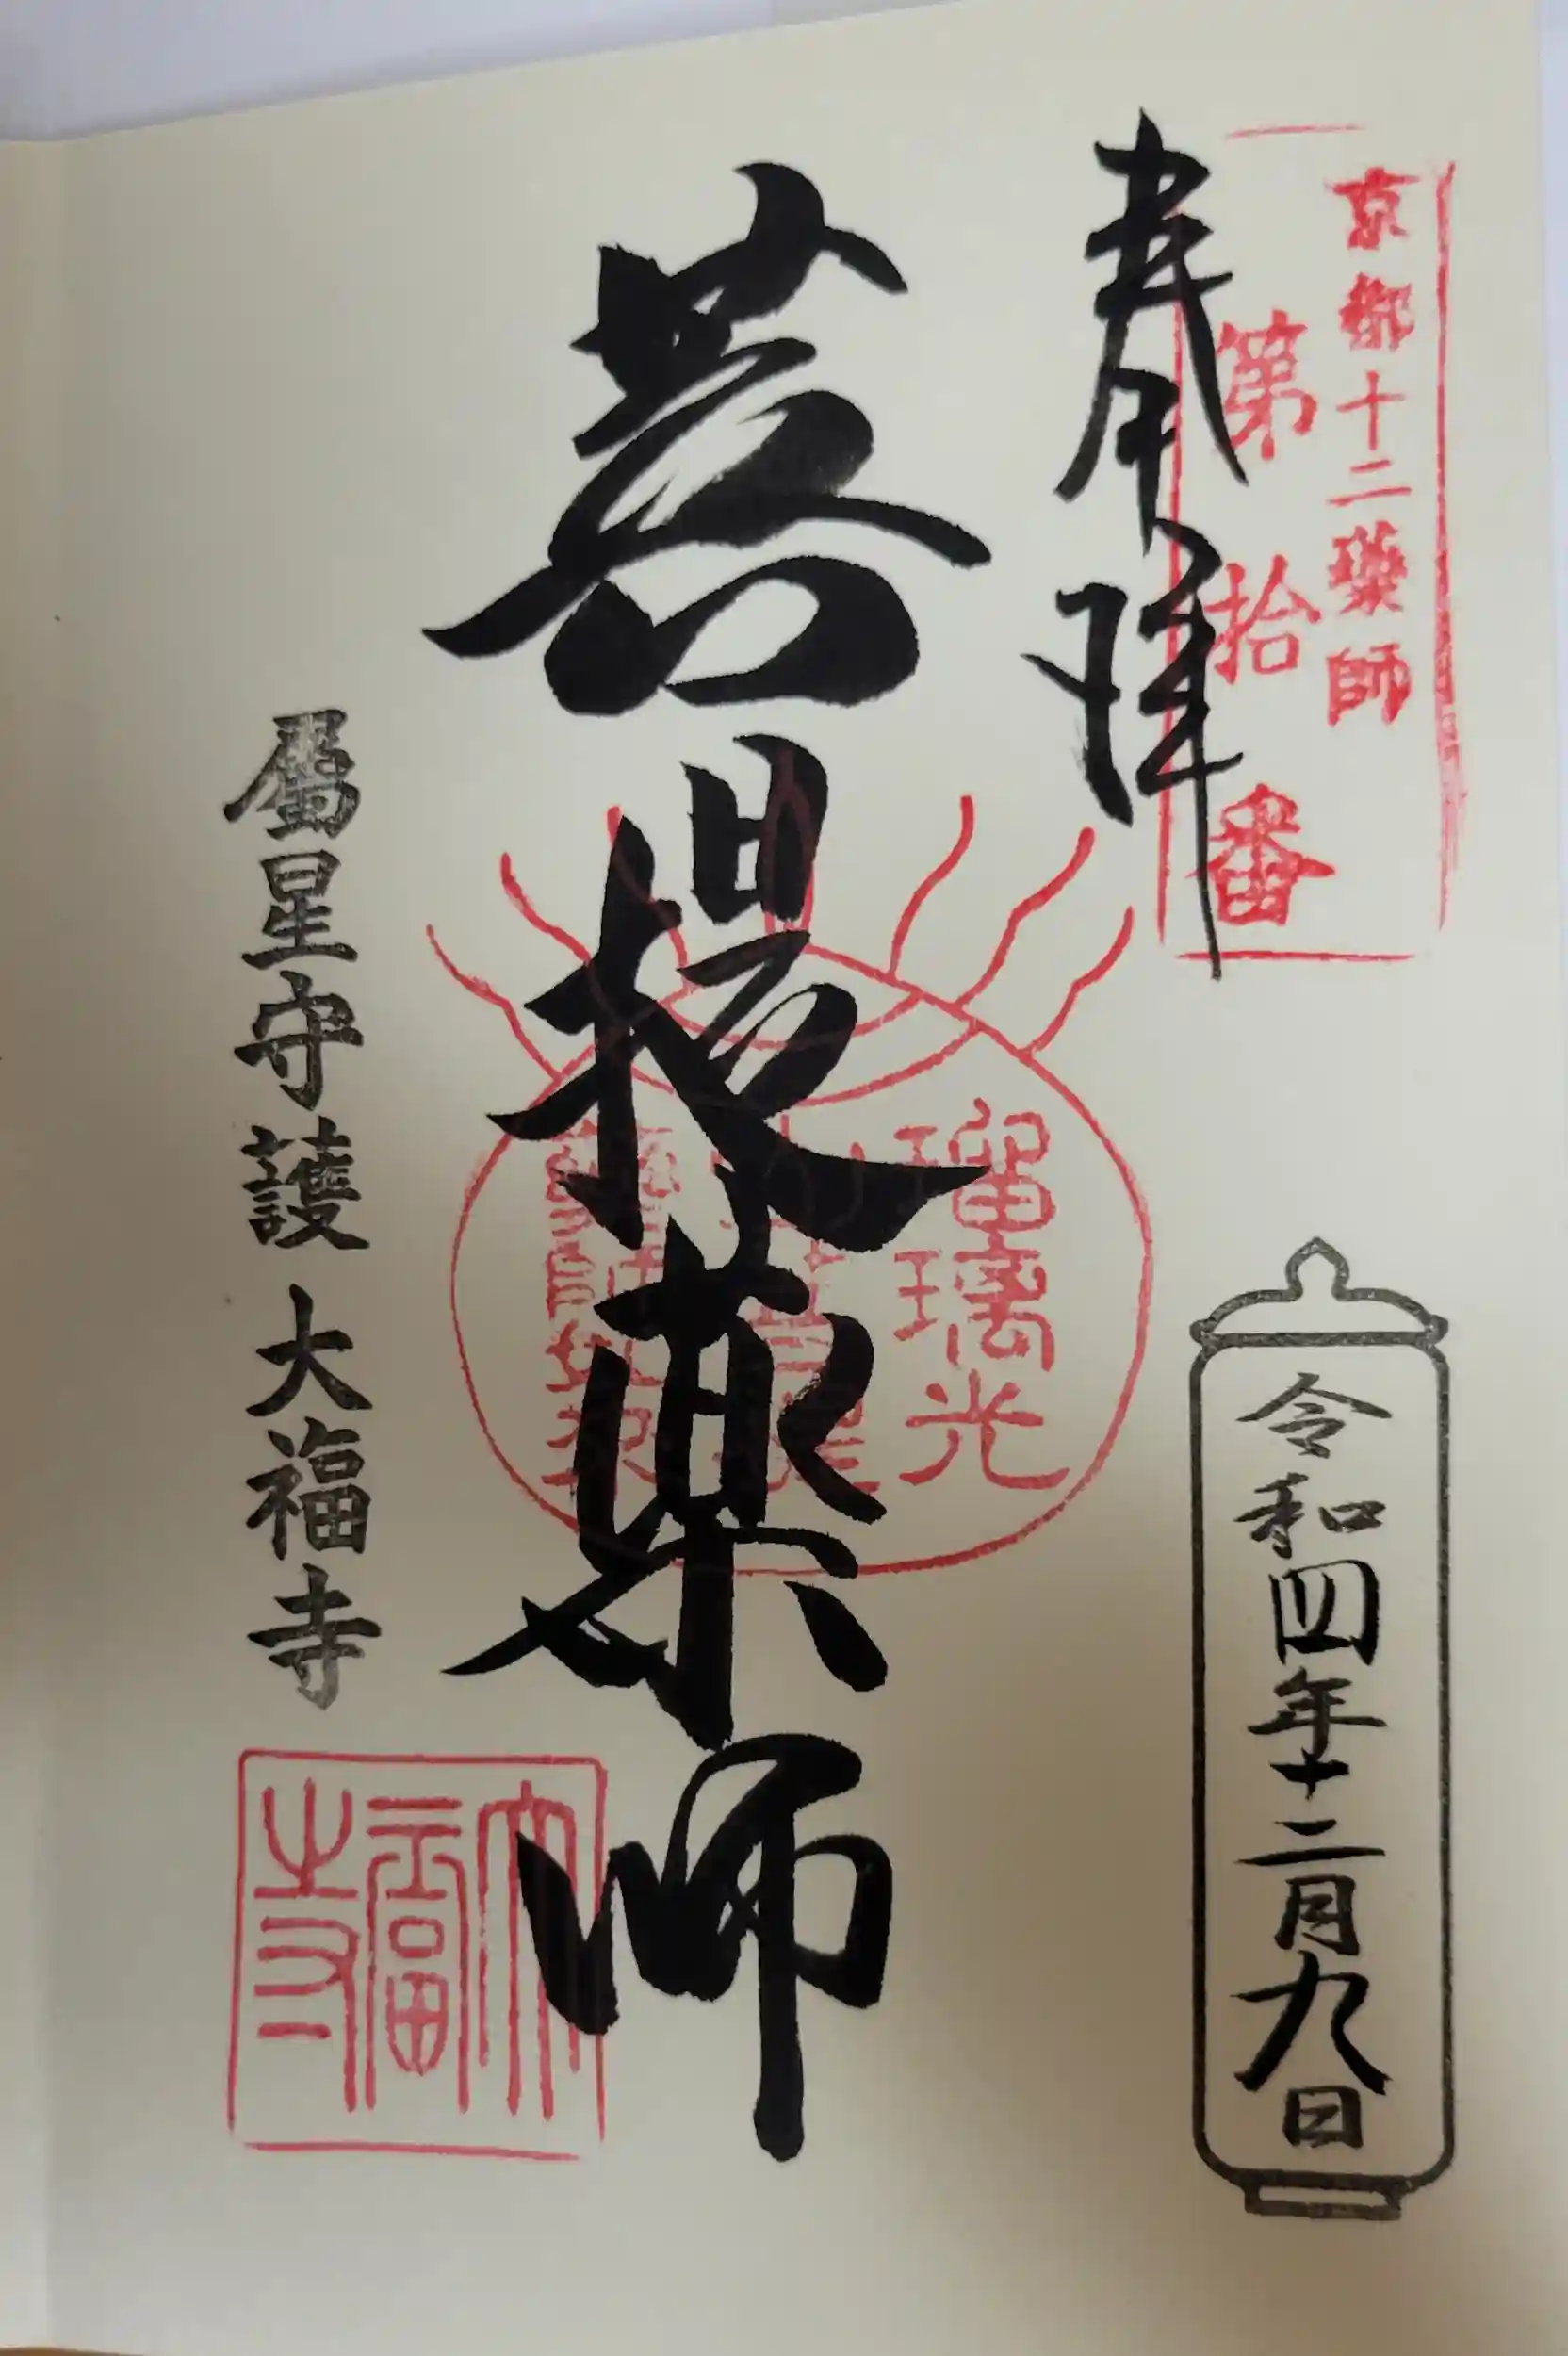 京都十二薬師
第拾番
奉拝
令和四年十二月九日
菩提薬師
瑠璃光
属星守護 大福寺
大福寺